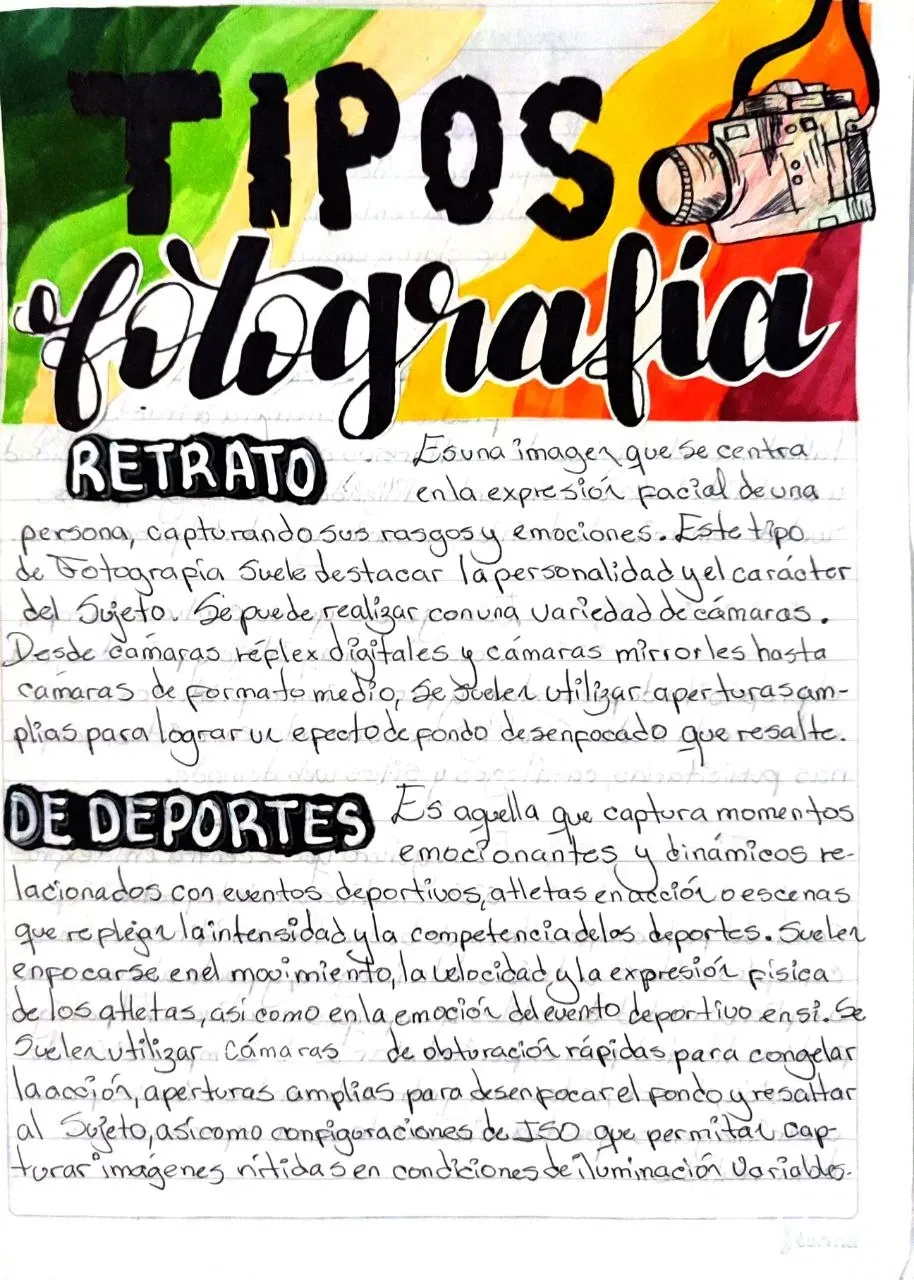 TIPOS
fotografía
RETRATO
Es una imagen que se centra
en la expresión facial de una
persona, capturando sus rasgos y emociones. Este tipo
de Fotografía Suele destacar la personalidad y el carácter
del Sujeto. Se puede realizar con una variedad de cámaras.
Desde cámaras réplex digitales y cámaras mirrorles hasta
camaras de formato medio, Se Suelen utilizar aperturas am-
plias para lograr un efecto de fondo desenfocado que resalte.
DE DEPORTES
Es aquella que captura momentos
emocionantes y dinámicos re-
lacionados con eventos deportivos, atletas en acción o escenas
que reflejan la intensidad y la competencia de los deportes. Suelen
enfocarse en el movimiento, la velocidad y la expresión física
de los atletas, así como en la emoción del evento deportivo en si. Se
Suelen utilizar cámaras de obturación rápidas para congelar
la acción, aperturas amplias para desenfocar el fondo y resaltar
al Sujeto, así como configuraciones de ISO que permitan cap-
turar imágenes nítidas en condiciones de iluminación variables.